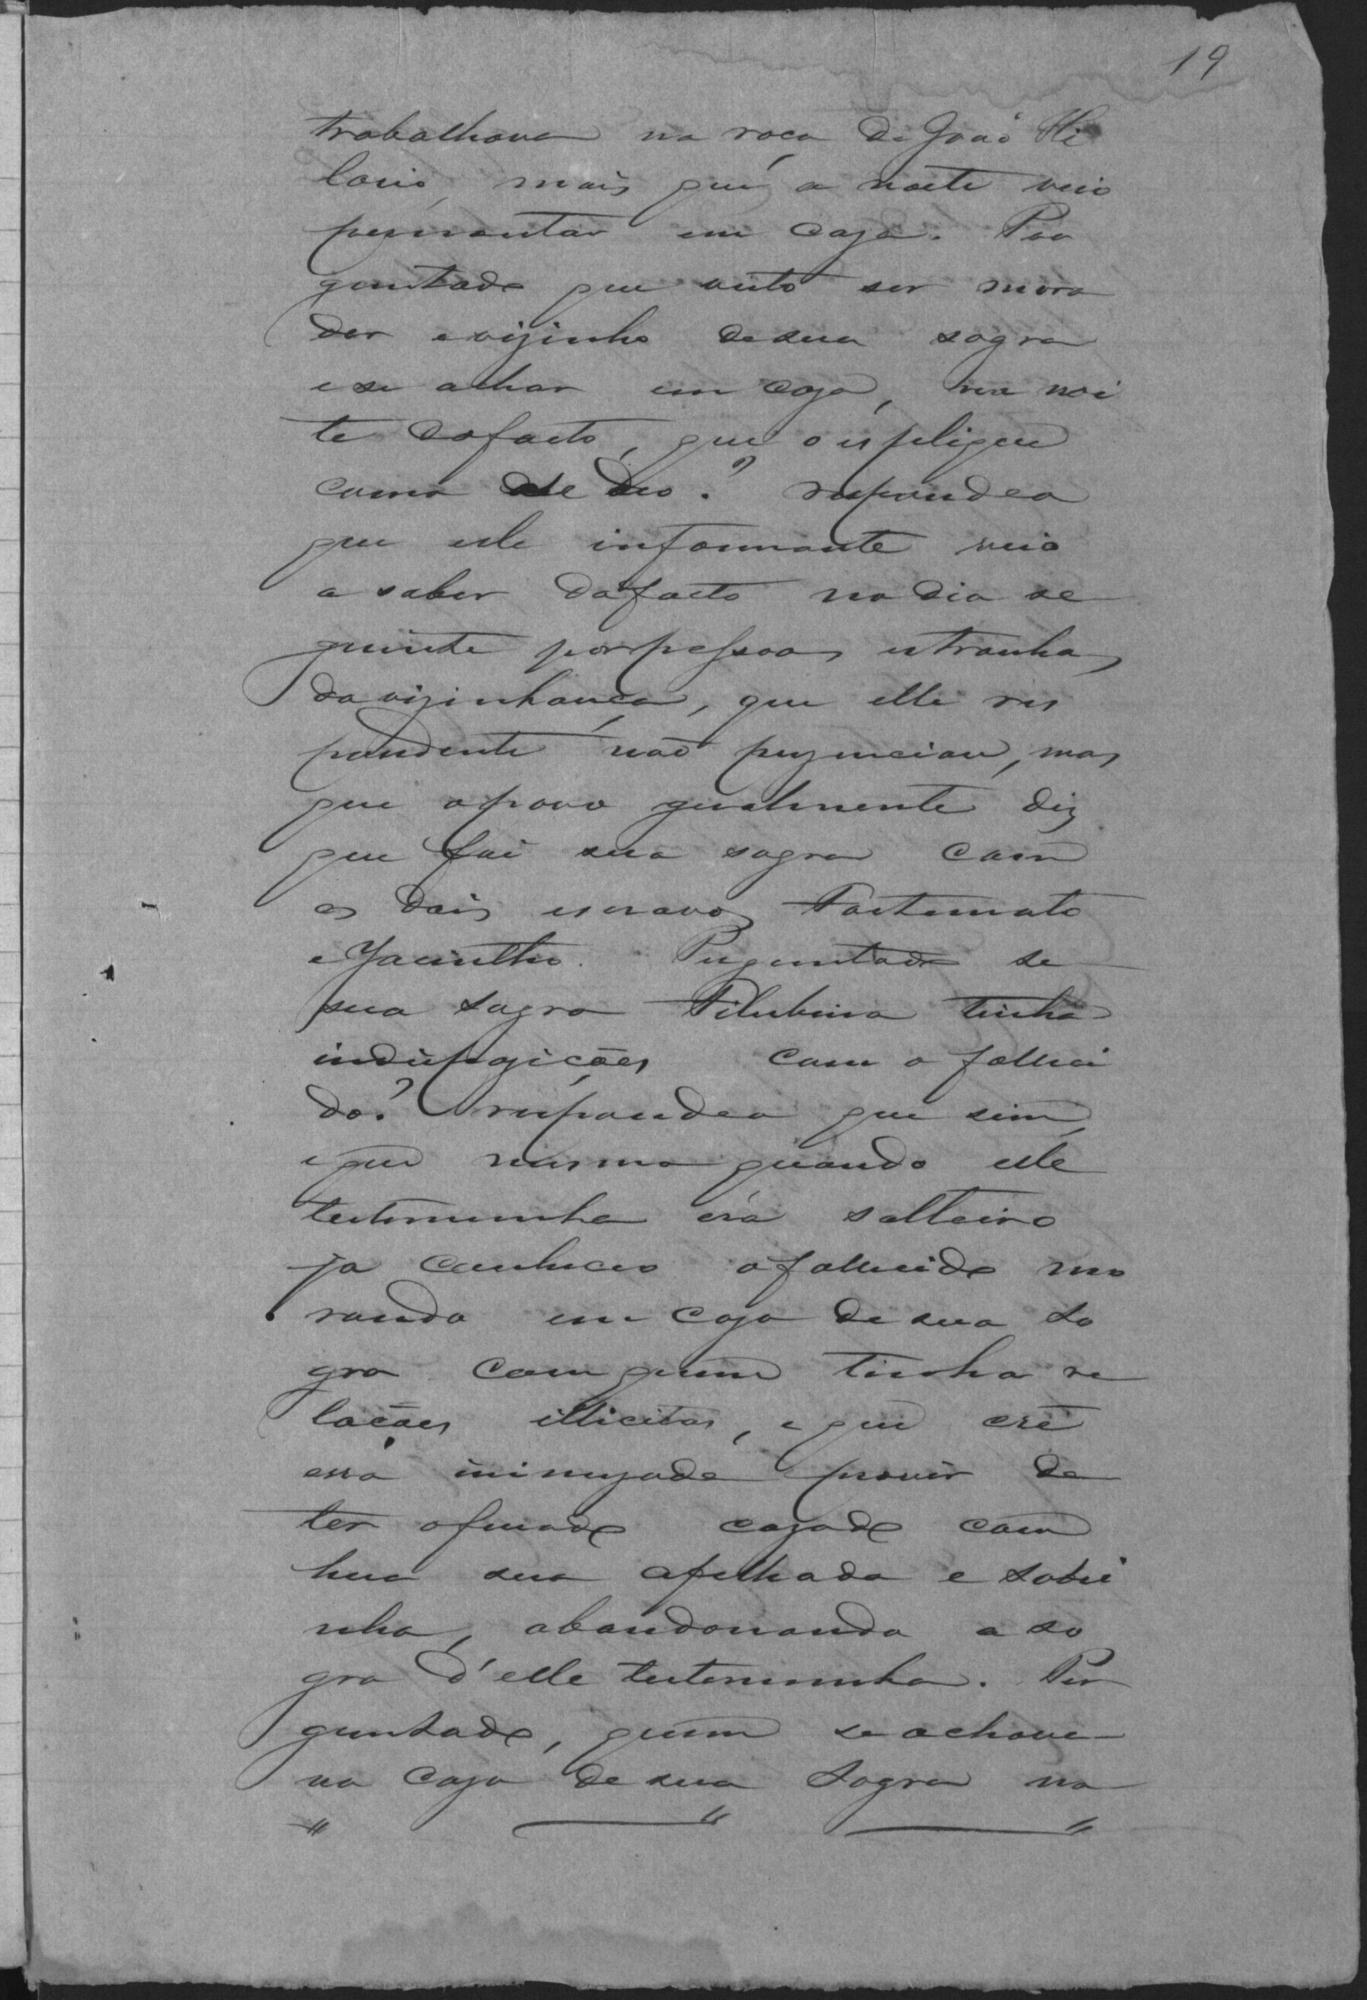 19
trabalhava na roça de João Hi
lario, mais que a noite veio
pernoutar em caza. Per
guntado que visto ser mora
dor e vizinho de sua sogra
e se achar em caza, na noi
te do facto, que o explique
como se deo? respondeo
que elle informante veio
a saber do facto no dia se
guinte por pessoas estranhas
da vizinhança, que elle res
pondente não prezenciou, mas
que o povo geralmente diz
que foi sua sogra com
os dois escravos Fortunato
e Jacintho. Preguntado se
sua sogra tinha
indispozições com o falleci
do? respondeo que sim,
e que mesmo quando elle
testemunha éra solteiro
ja conheceo o fallecido mo
rando em caza de sua so
gra com quem tinha re
lações illicitas, e que crê
essa inimizade provir de
ter o finado cazado com
hua sua afilhada e sobri
nha, abandonando a so
gra d'elle testemunha. Per
guntado, quem se achava
na caza de sua sogra na